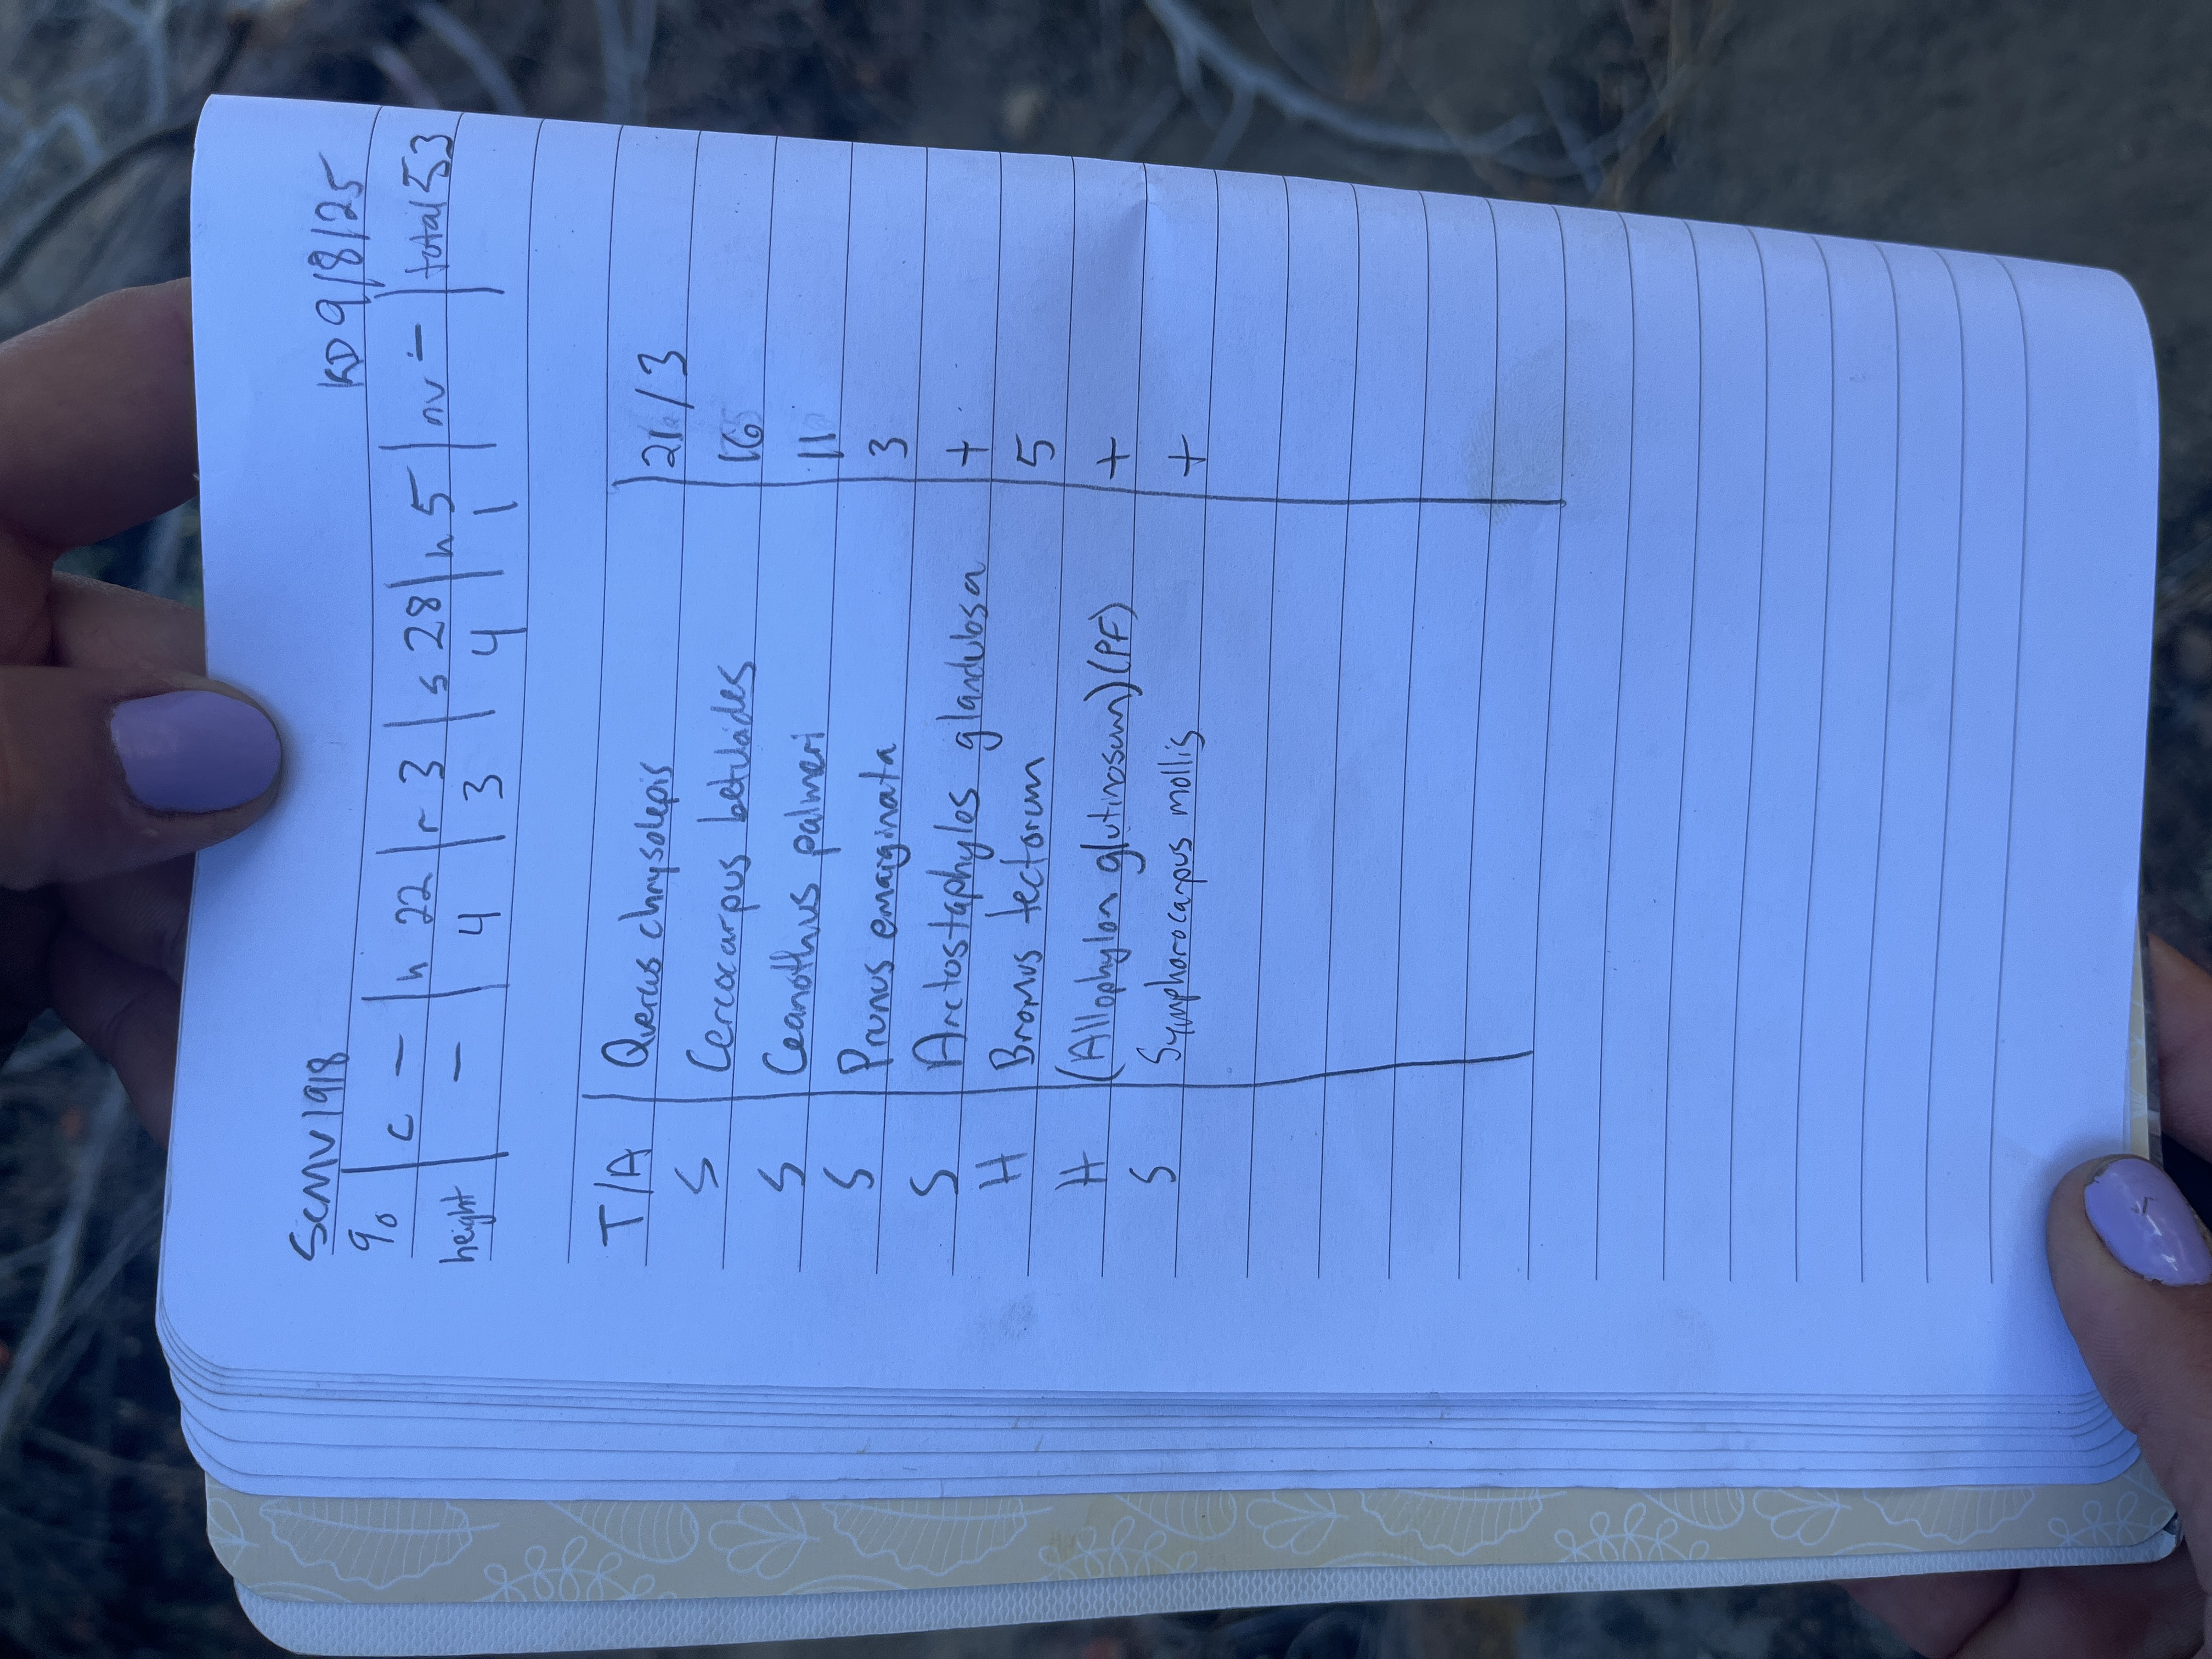 SCMV1918 KD 9/8/25
% | c – | h 22 | r 3 | s 28 | h 5 | nv – | total 53
height | – | 4 | 3 | 4 | 1
T/A | Quercus chrysolepis | 21/3
S Cercocarpus betuloides 16
S Ceanothus palmeri 11
S Prunus emarginata 3
S Arctostaphylos glandulosa +
H Bromus tectorum 5
H (Allophylon glutinosum) (PF) +
S Symphorocarpus mollis +